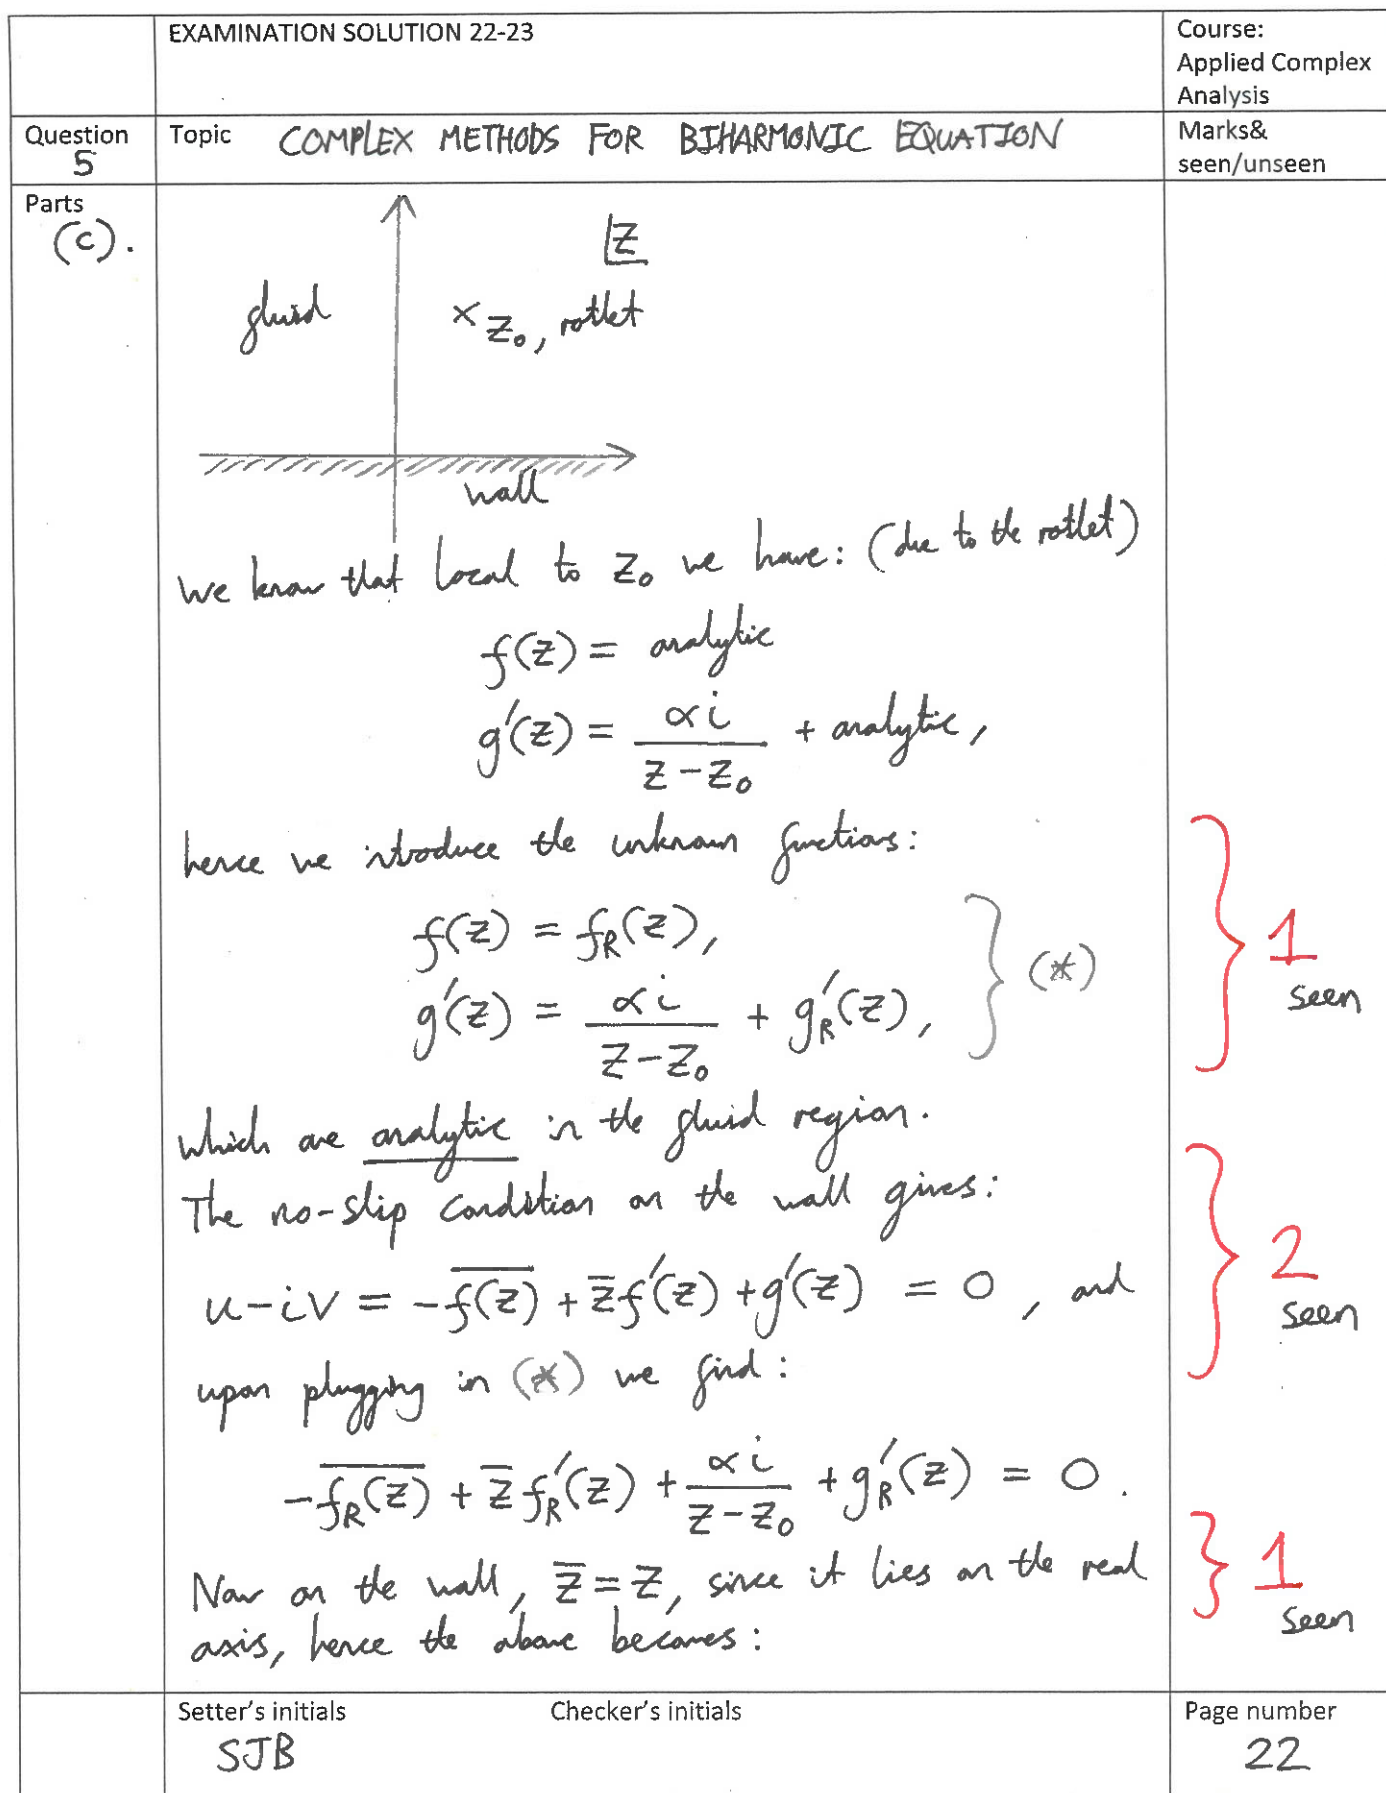 EXAMINATION SOLUTION 22-23
Course:
Applied Complex
Analysis
Question
5
Topic COMPLEX METHODS FOR BIHARMONIC EQUATION
Marks&
seen/unseen
Parts
(c).
z
fluid
× z₀, rotlet
wall
We know that local to z₀ we have: (due to the rotlet)
f(z) = analytic
g'(z) = αi/(z - z₀) + analytic,
hence we introduce the unknown functions:
f(z) = f_R(z),
g'(z) = αi/(z - z₀) + g'_R(z),
(*)
1
seen
which are analytic in the fluid region.
The no-slip condition on the wall gives:
u - iv = -\overline{f(z)} + z̄f'(z) + g'(z) = 0, and
2
seen
upon plugging in (*) we find:
-\overline{f_R(z)} + z̄f'_R(z) + αi/(z - z₀) + g'_R(z) = 0.
Now on the wall, z̄ = z, since it lies on the real
axis, hence the above becomes:
1
seen
Setter's initials
SJB
Checker's initials
Page number
22